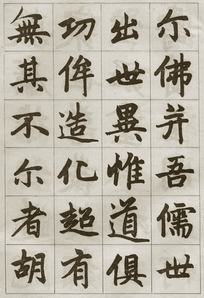 尔佛并吾儒世
出世異惟道俱
切侔造化超有
無其不尔者胡